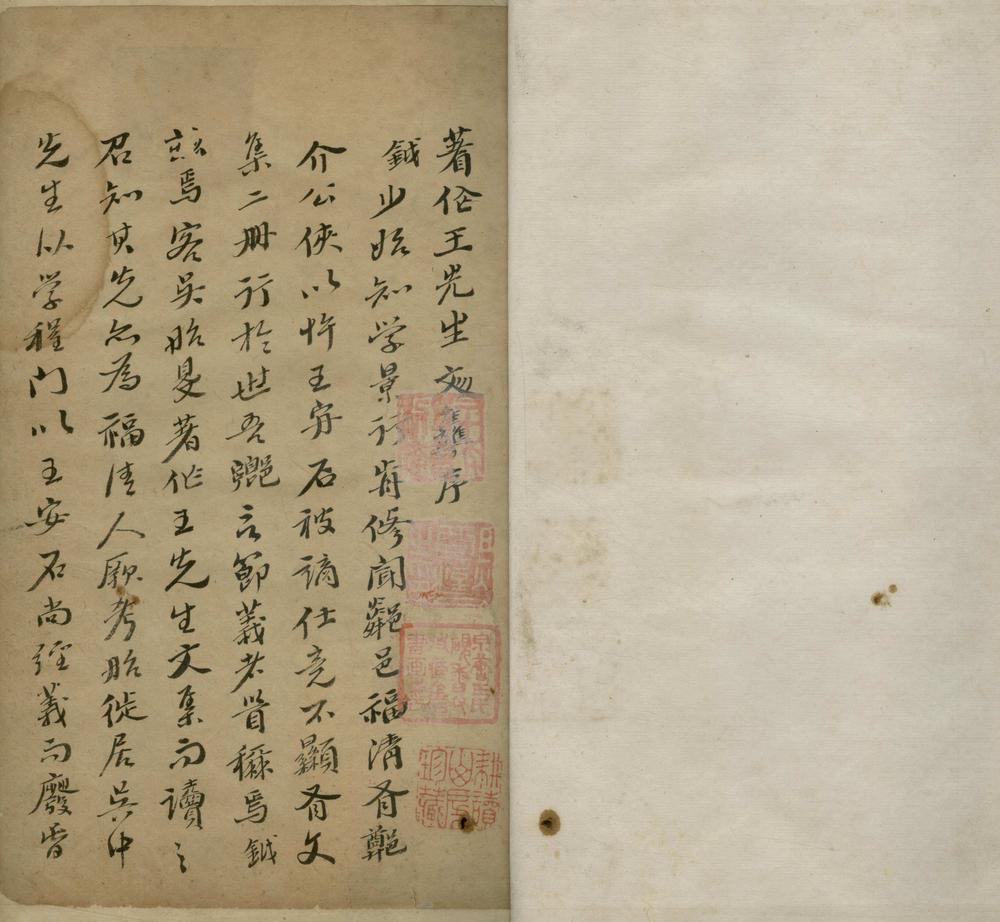 著作王先生文集序
鉞少始知学景行前修聞鄰邑福清有鄭
介公俠以忤王安石被謫仕竟不顯有文
集二冊行於世吾鄉言節義者皆稱焉鉞
焉客吳始著作王先生文集而讀之
知其先亦為福清人厥考始徙居吳中
先生以学程門以王安石尚經義而廢春
耕讀山房珍藏